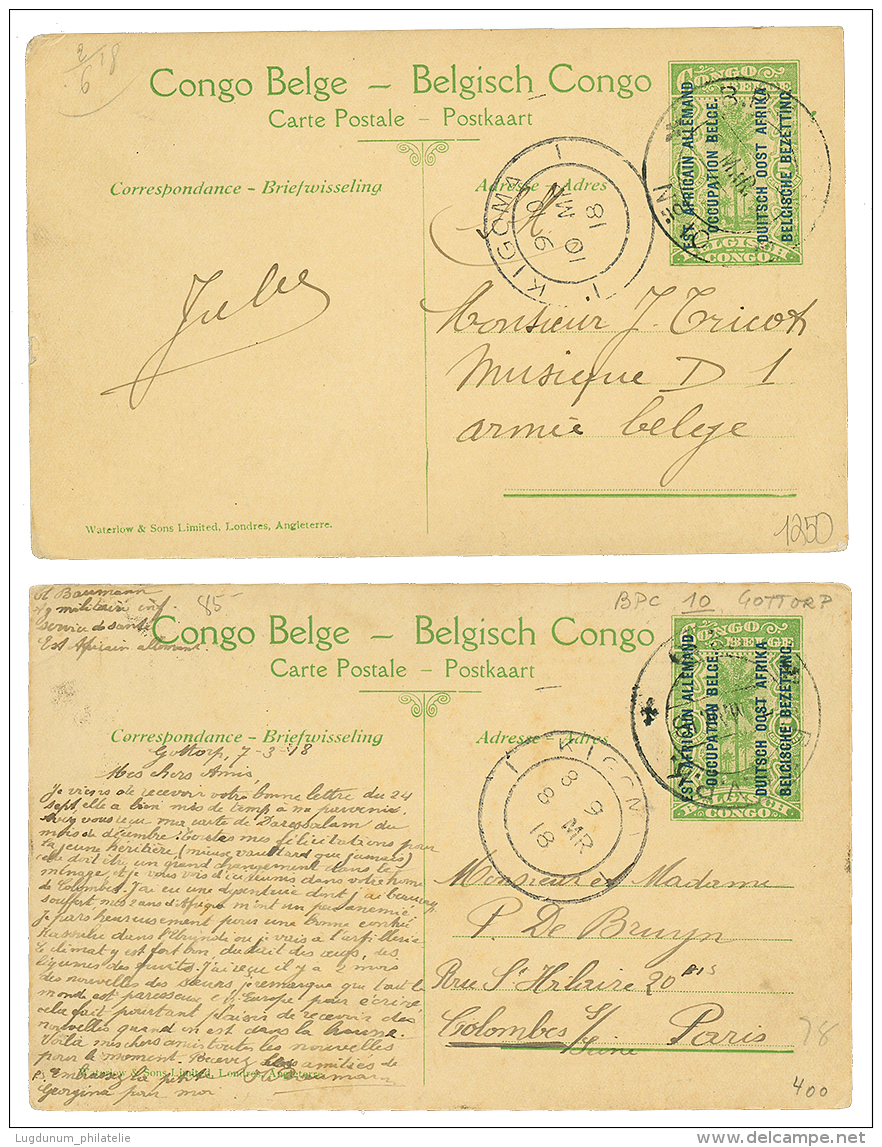 2/6 18
Congo Belge – Belgisch Congo
Carte Postale – Postkaart
Correspondance – Briefwisseling
Adresse – Adres
CONGO BELGE
EST AFRICAIN ALLEMAND
OCCUPATION BELGE.
DUITSCH OOST AFRIKA
BELGISCHE BEZETTING.
BELGISCH CONGO
KIGOMA
18
10 MR
Jules
Monsieur J. Tricot
Musique D 1
armée belge
Waterlow & Sons Limited, Londres, Angleterre.
1250
Baumann
militaire inf.
service de santé
Est Africain allemand
85-
BPC 10 GOTTORP
Congo Belge – Belgisch Congo
Carte Postale – Postkaart
Correspondance – Briefwisseling
Adresse – Adres
CONGO BELGE
EST AFRICAIN ALLEMAND
OCCUPATION BELGE.
DUITSCH OOST AFRIKA
BELGISCHE BEZETTING.
BELGISCH CONGO
KIGOM
8 9
MR
8 18
Gottorp, 7-3-18
Mes chers Amis,
Je viens de recevoir votre bonne lettre du 24
sept elle a bien mis de temp à me parvenir.
vous reçu ma carte de Daressalam du
mois de décembre. Toutes mes félicitations pour
la jeune héritière (mieux vaut tard que jamais)
cela doit être un grand changement dans le
ménage, et je vous vois d'ici réunis dans votre home
de Colombes. J'ai eu une dysentrie dont j'ai beaucoup
souffert mes 2 ans d'Afrique m'ont un peu anémié.
Je pars heureusement pour une bonne contrée
Kassulu dans l'Urundi où je vais à l'artillerie
Le climat y est fort bon, du lait des œufs, des
légumes des fruits. J'ai reçu il y a 2 mois
des nouvelles des sœurs, je remarque que tout le
monde est paresseux en Europe pour écrire
cela fait pourtant plaisir de recevoir des
nouvelles quand on est dans la brousse.
Voilà mes chers amis toutes les nouvelles
pour le moment. Recevez les amitiés de
Embrassez la petite
Georgina pour moi
Monsieur et Madame
P. De Bruyn
Rue St Hilaire 20 bis
Colombes s/Seine Paris
Waterlow & Sons Limited, Londres, Angleterre.
78
400
Lugdunum_philatelie
www.delcampe.net